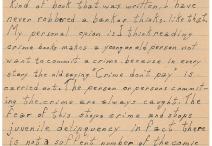 kind of book that was written. i have
never robbered a bank or thinks. like that.
My personal opion is a think reading
crime books makes a young or old person not
want to commit a crime. because in every
story the old saying "Crime don't pay" is
carried out. The person or persons committ-
ing the crime are always caught. The
fear of this stops crime and stops
juvenile delinquency in fact there
is not a soffient number of the comic